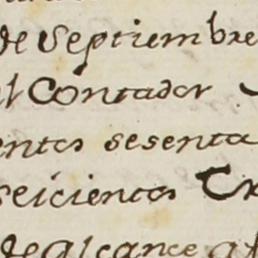 de Septiembre
Contador
entos sesenta
seicientos
de alcance